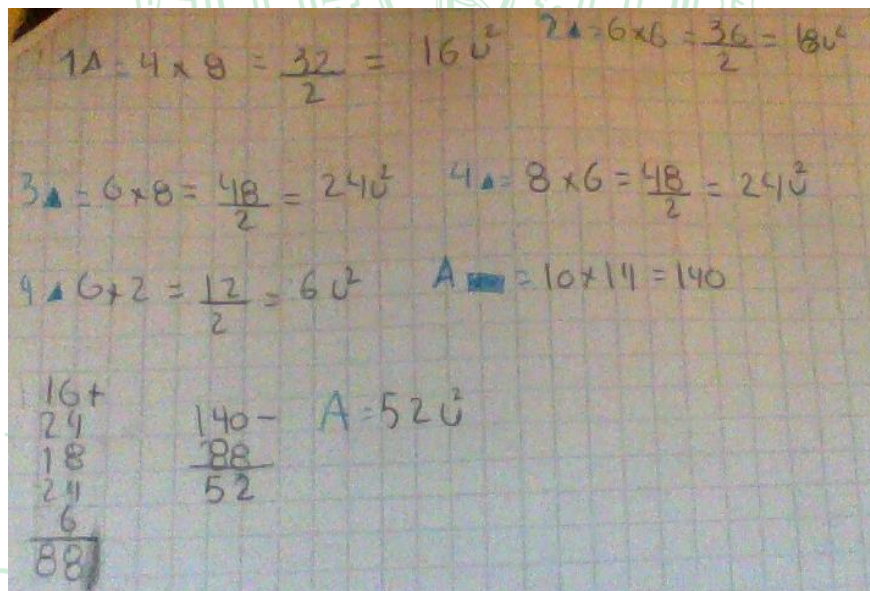 1△ = 4 x 8 = 32/2 = 16 u²
2▲ = 6x6 = 36/2 = 18u²
3▲ = 6x8 = 48/2 = 24u²
4▲ = 8x6 = 48/2 = 24u²
4▲ 6x2 = 12/2 = 6u²
A▬ = 10x14 = 140
16+
24
18
24
6
88
140-
88
52
A = 52u²